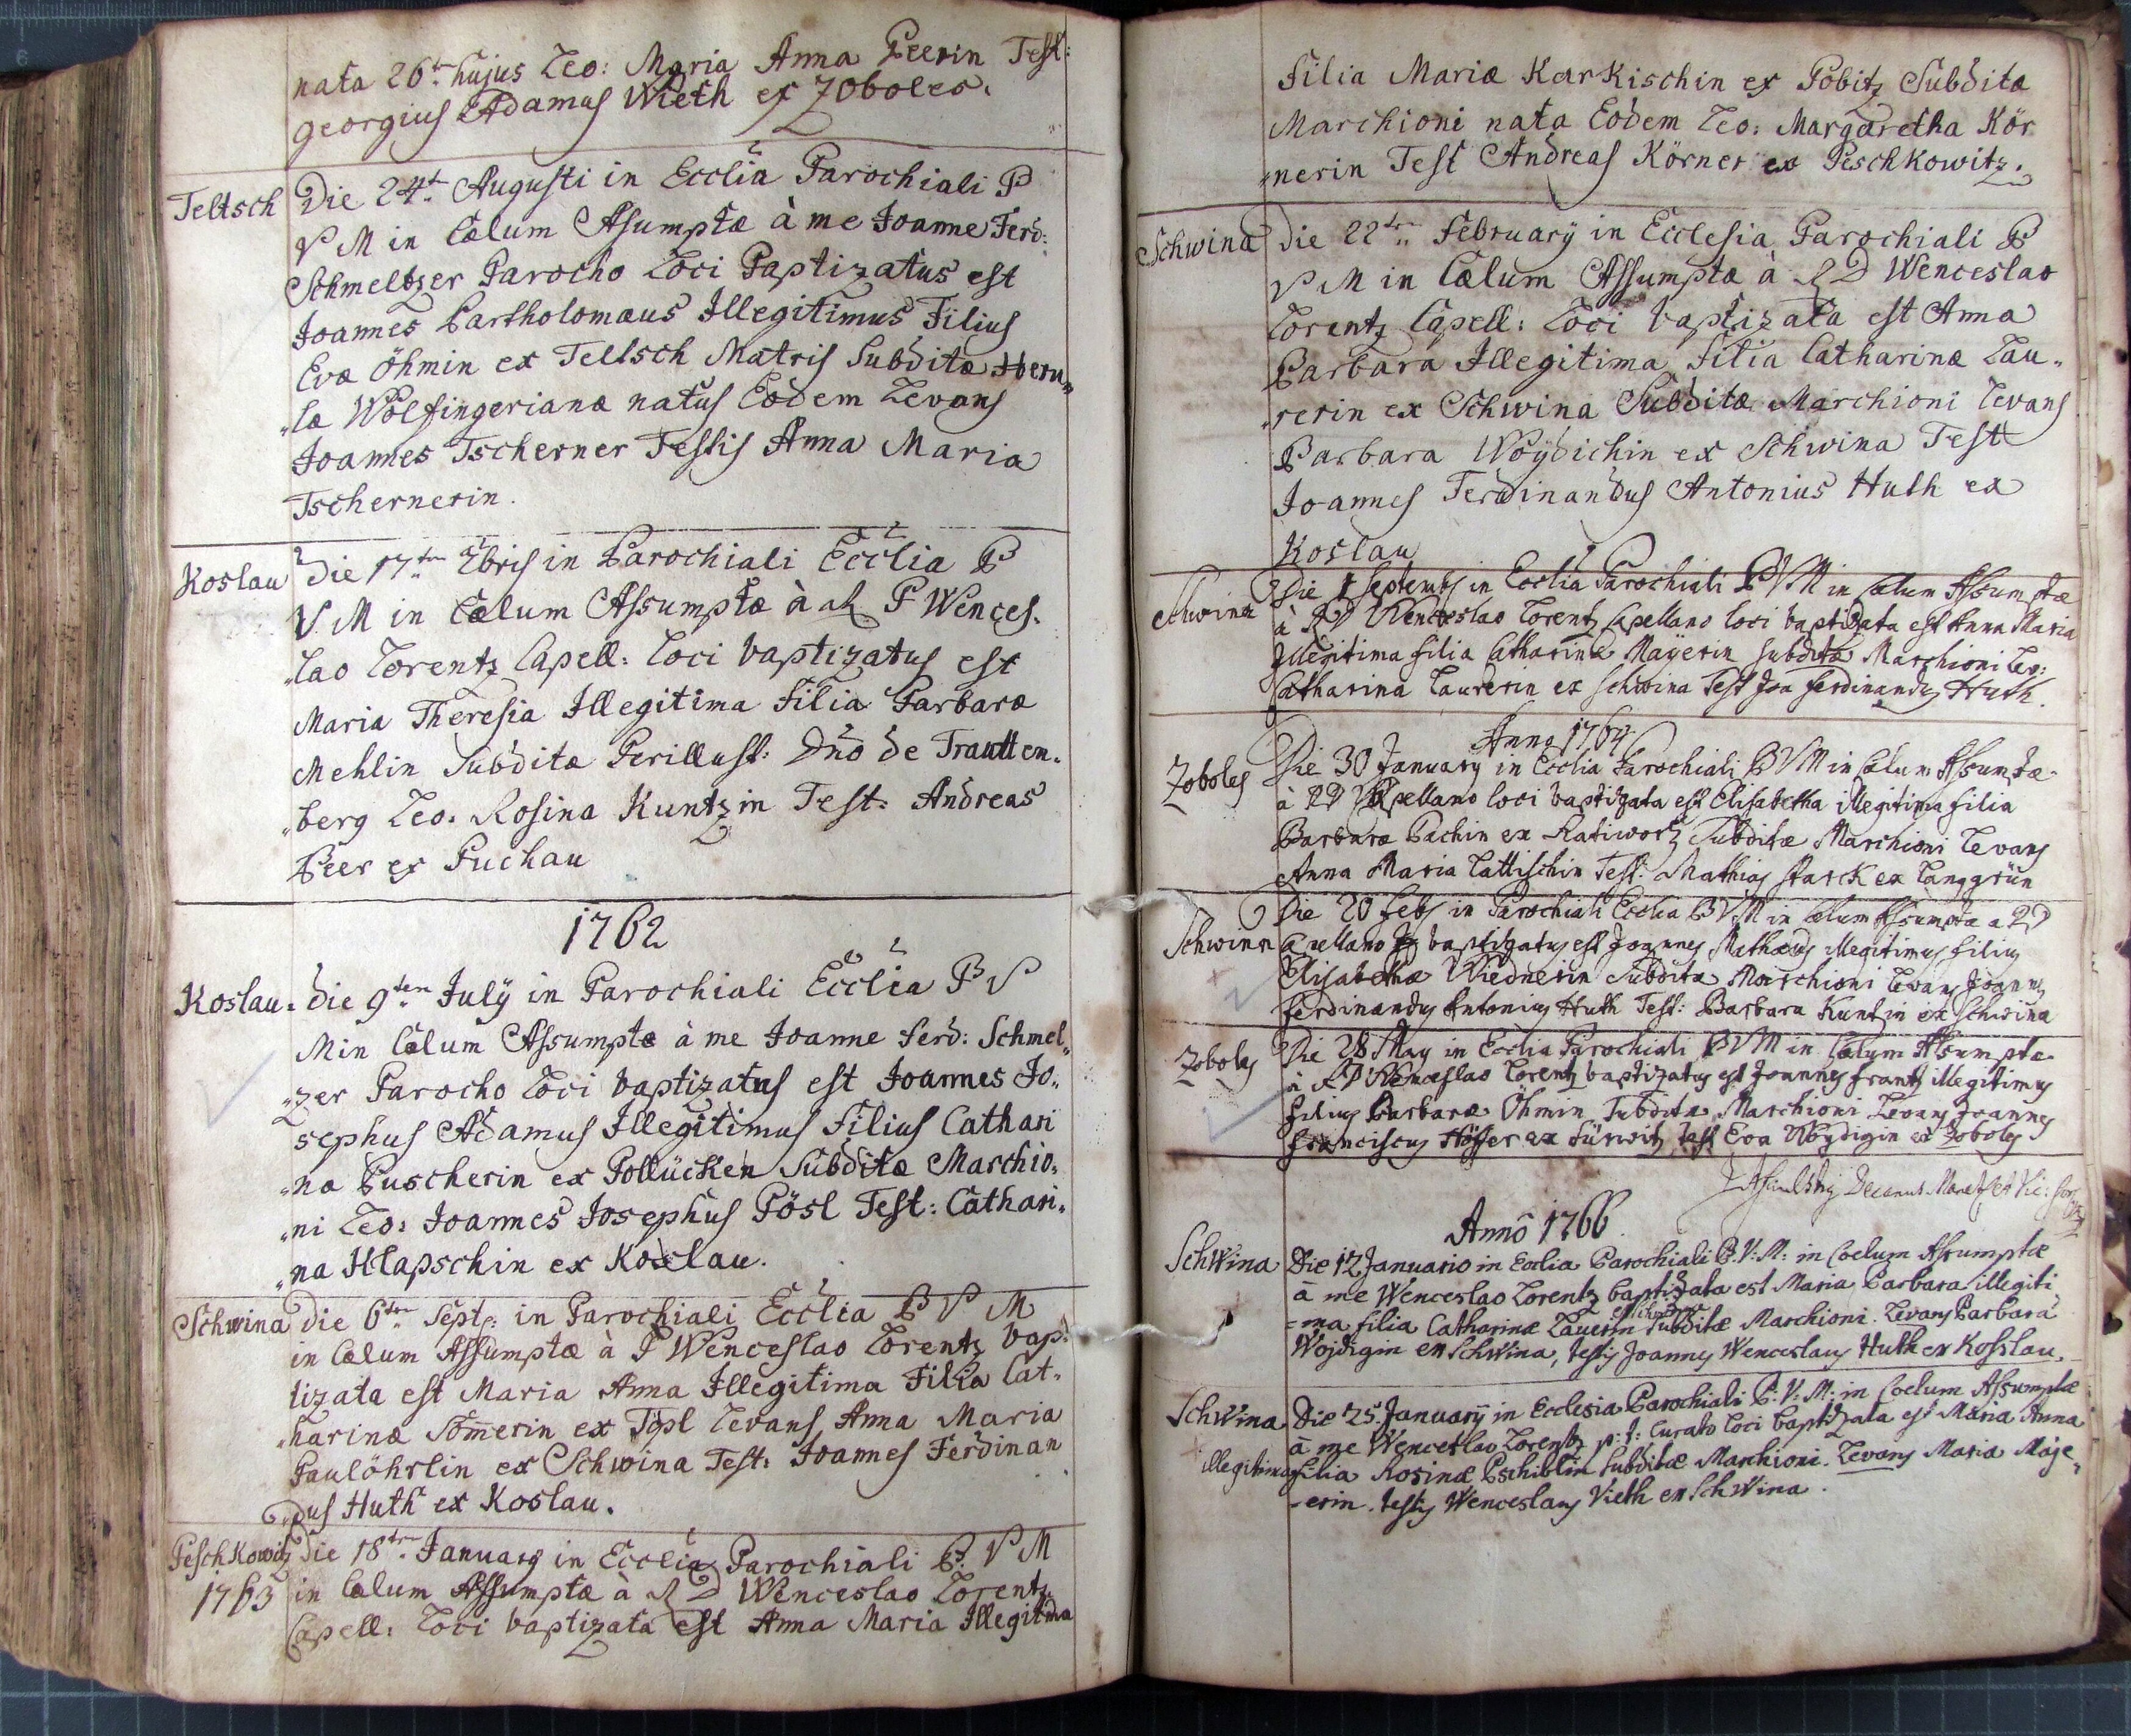 nata 26te hujus Leo: Maria Anna Peerin Test:
georgius Adamus Vieth ex Zoboles.
Teltsch Die 24te Augusti in Ecclia Parochiali B
V M in Cælum Asumptæ à me Joanne Ferd:
Schmeltzer Parocho Loci Baptizatus est
Joannes Bartholomæus Illegitimus Filius
Evæ Öhmin ex Teltsch Matris Subditæ Heru„
„læ Wolfingerianæ natus Eodem Levans
Joannes Tscherner Testis Anna Maria
Tschernerin.
Koslau Die 17ten Xbris in Parochiali Ecclia B
V M in Cælum Assumptæ à R P Wences„
„lao Lorentz Capell: Loci baptizatus est
Maria Theresia Illegitima Filia Barbaræ
Mehlin Subditæ Perillust: Dno de Trautten„
„berg Leo: Rosina Kuntzin Test: Andreas
Peer ex Puchau
1762
Koslau. die 9ten July in Parochiali Ecclia B V
M in Cælum Assumptæ à me Joanne Ferd: Schmel„
„zer Parocho Loci baptizatus est Joannes Jo„
sephus Adamus Illegitimus Filius Cathari
„næ Puscherin ex Pollücken Subditæ Marchio„
„ni Leo: Joannes Josephus Pösl Test: Cathari„
„na Hlapschin ex Koslau.
Schwina die 6ten Sept: in Parochiali Ecclia B V M
in Cælum Assumptæ à P Wenceslao Lorentz bap„
tizata est Maria Anna Illegitima Filia Cat„
„harinæ Som̅erin ex Töpl Levans Anna Maria
Paulöhrlin ex Schwina Test: Joannes Ferdinan
dus Huth ex Koslau.
Peschkowitz die 18ten January in Ecclia Parochiali B: V M
1763 in Cælum Assumptæ à R D Wenceslao Lorentz
Capell: Loci baptizata est Anna Maria Illegitima
Filia Mariæ Karkischin ex Pobitz Subditæ
Marchioni nata Eodem Leo: Margaretha Kör
„nerin Test Andreas Körner ex Peschkowitz.
Schwina die 22ten February in Ecclesia Parochiali B
V M in Cælum Assumptæ à R D Wenceslao
Lorentz Capell: Loci baptizata est Anna
Barbara Illegitima Filia Catharinæ Lau„
„rerin ex Schwina Subditæ Marchioni Levans
Barbara Woÿdichin ex Schwina Test
Joannes Ferdinandus Antonius Huth ex
Koslau
Schwina Die 1 Septembs in Ecclia Parochiali B V M in Cælum Assumptæ
à R D Wenceslao Lorentz Capellano loci baptizata est Anna Maria
Illegitima filia Catharinæ Mayerin subditæ Marchioni Lev:
Catharina Laurerin ex Schwina Test Joa Ferdinandus Huth.
Anno 1764
Zoboles Die 30 January in Ecclia Parochiali B V M in Cælum Assumtæ
à R D Capellano loci baptizata est Elisabetha illegitima filia
Barbaræ Pachin ex Ratiwortz Subditæ Marchioni Levans
Anna Maria Lattischin Test: Mathias Starck ex Langgrün
Schwina Die 20 Febs in Parochiali Ecclia B V M in Cælum Assumptæ a R D
Capellano baptizatus est Joannes Mathæus illegitimus filius
Elisabethæ Wiednerin Subditæ Marchioni Levans Joannes
Ferdinandus Antonius Huth Test: Barbara Kuntzin ex Schwina
Zoboles Die 28 May in Ecclia Parochiali B V M in Cælum Assumptæ
à R D Wenceslao Lorentz baptizatus est Joannes Frantz illegitimus
filius Barbaræ Öhmin Subditæ Marchioni Levans Joannes
Franciscus Höffer ex Sürwitz test Eva Woydigin ex Zoboles
Decanus et Vic:
Anno 1766
Schwina Die 12 Januario in Ecclia Parochiali B: V: M: in Coelum Assumptæ
à me Wenceslao Lorentz baptizata est Maria Barbara illegiti
=ma filia Catharinæ Lauerin ex Schwina Subditæ Marchioni. Levans Barbara
Wojdigin ex Schwina, testis Joannes Wenceslaus Huth ex Kosslau.
Schwina Die 25. January in Ecclesia Parochiali B: V: M: in Coelum Assumptæ
à me Wenceslao Lorentz p: t: Curato Loci baptizata est Maria Anna
illegitima filia Rosinæ Pschiblin Subditæ Marchioni. Levans Maria Maje„
=erin. testis Wenceslaus Vieth ex Schwina.